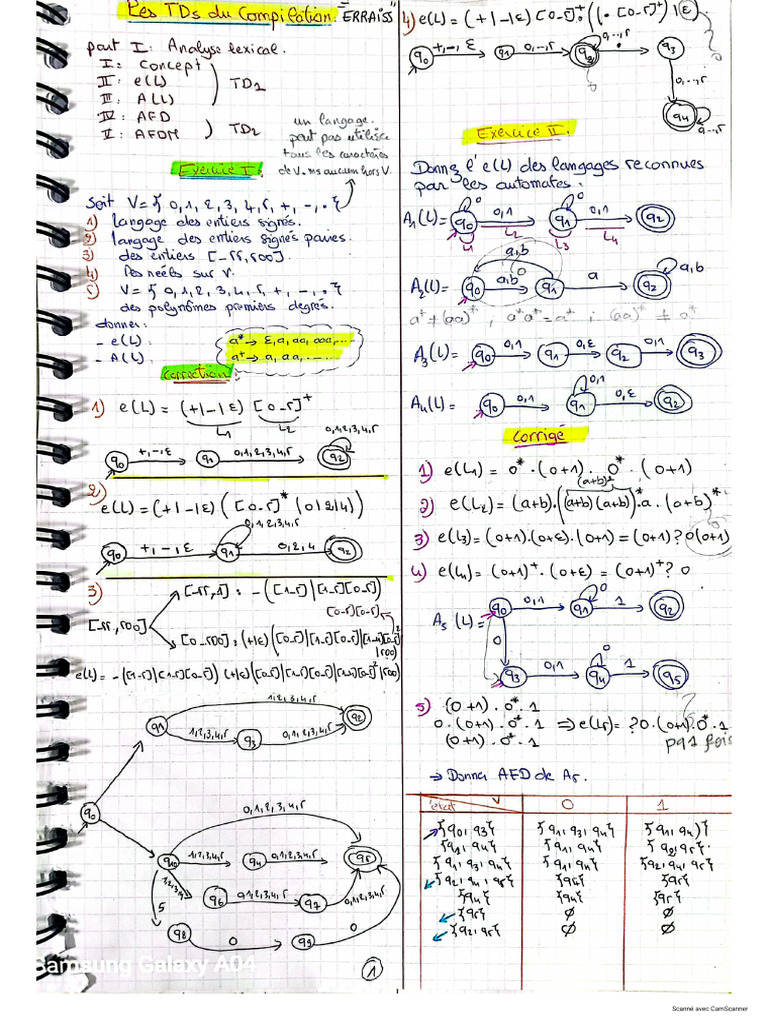 Les TDs du Compilation. "ERRAISS"
part I: Analyse lexical.
I: Concept
II: e(L)
III: A(L)
TD1
IV: AFD
V: AFDM
TD2
un langage.
peut pas utilisée
tous les caractères
de V. ms aucun hors V.
Exercice I:
Soit V={ 0,1,2,3,4,5,+,-,.}
1) langage des entiers signés.
2) langage des entiers signés paires.
3) des entiers [-55,500].
4) les réels sur V.
5) V={ 0,1,2,3,4,5,+,-,.}
des polynômes premiers degrés.
donner:
- e(L)
- A(L)
a* → ε,a,aa,aaa,...
a+ → a,aa,......
Correction:
1) e(L) = (+|-|ε) [0-5]+
L1 L2
q0 +,-,ε q1 0,1,2,3,4,5 q2 0,1,2,3,4,5
2)
e(L)=(+|-|ε)([0-5]* (0|2|4))
q0 +,-,ε q1 0,1,2,3,4,5 0,2,4 q2
3)
[-55,500]
[-55,1] : -([1-5]|[1-5][0-5])
[0-5][0-5]
[0_500]: (+|ε)([0-5]|[1-5][0-5]|[1-4][0-5]²|500)
e(L)= -([1-5]|[1-5][0-5]) (+|ε)([0-5]|[1-5][0-5]|[1-4][0-5]²|500)
q1 1,2,3,4,5 q2
1,2,3,4,5 q3 0,1,2,3,4,5
q0
0,1,2,3,4,5
q10 1,2,3,4,5 q4 0,1,2,3,4,5 q5
q6 0,1,2,3,4,5 q7 0,1,2,3,4,5
5 q8 0 q9 0
1
4) e(L) = (+|-|ε) [0-5]+ ((. [0-5]+) |ε)
q0 +,-,ε q1 0,..,5 q2 0,..,5 . q3
0,..,5
q4 0,..,5
Exercice II:
Donnez l'e(L) des langages reconnues
par les automates:
A1(L)= q0 0 0,1 q1 0 0,1 q2
L1 L2 L3 L4
A2(L)= q0 a,b a,b q1 a q2 a,b
a+ ≠ (aa)*, a*a* = a* ; (aa)* ≠ a*
A3(L)= q0 0,1 q1 0,ε q2 0,1 q3
A4(L)= q0 0,1 q1 0,1 0,ε q2
Corrigé
1) e(L1) = 0*.(0+1). 0*.(0+1)
(a+b)²
2) e(L2) = (a+b).((a+b)(a+b))*.a.(a+b)*
3) e(L3)=(0+1).(0+ε).(0+1) = (0+1)?0(0+1)
4) e(L4)= (0+1)+.(0+ε) = (0+1)+?0
A5(L)= q0 0,1 q1 0 1 q2
0
q3 0,1 q4 0 1 q5
5) (0+1).0*.1
0.(0+1).0*.1 ⇒ e(L5)= ?0.(0+1).0*.1
(0+1).0*.1
→ Donna AED de A5.
état V 0 1
{q0,q3} {q1,q3,q4} {q1,q4}
{q1,q4} {q1,q4} {q2,q5}
{q1,q3,q4} {q1,q4} {q2,q4,q5}
{q2,q4,q5} {q4} {q5}
{q4} {q4} {q5}
{q5} ∅ ∅
{q2,q5} ∅ ∅
Samsung Galaxy A04
Scanné avec CamScanner